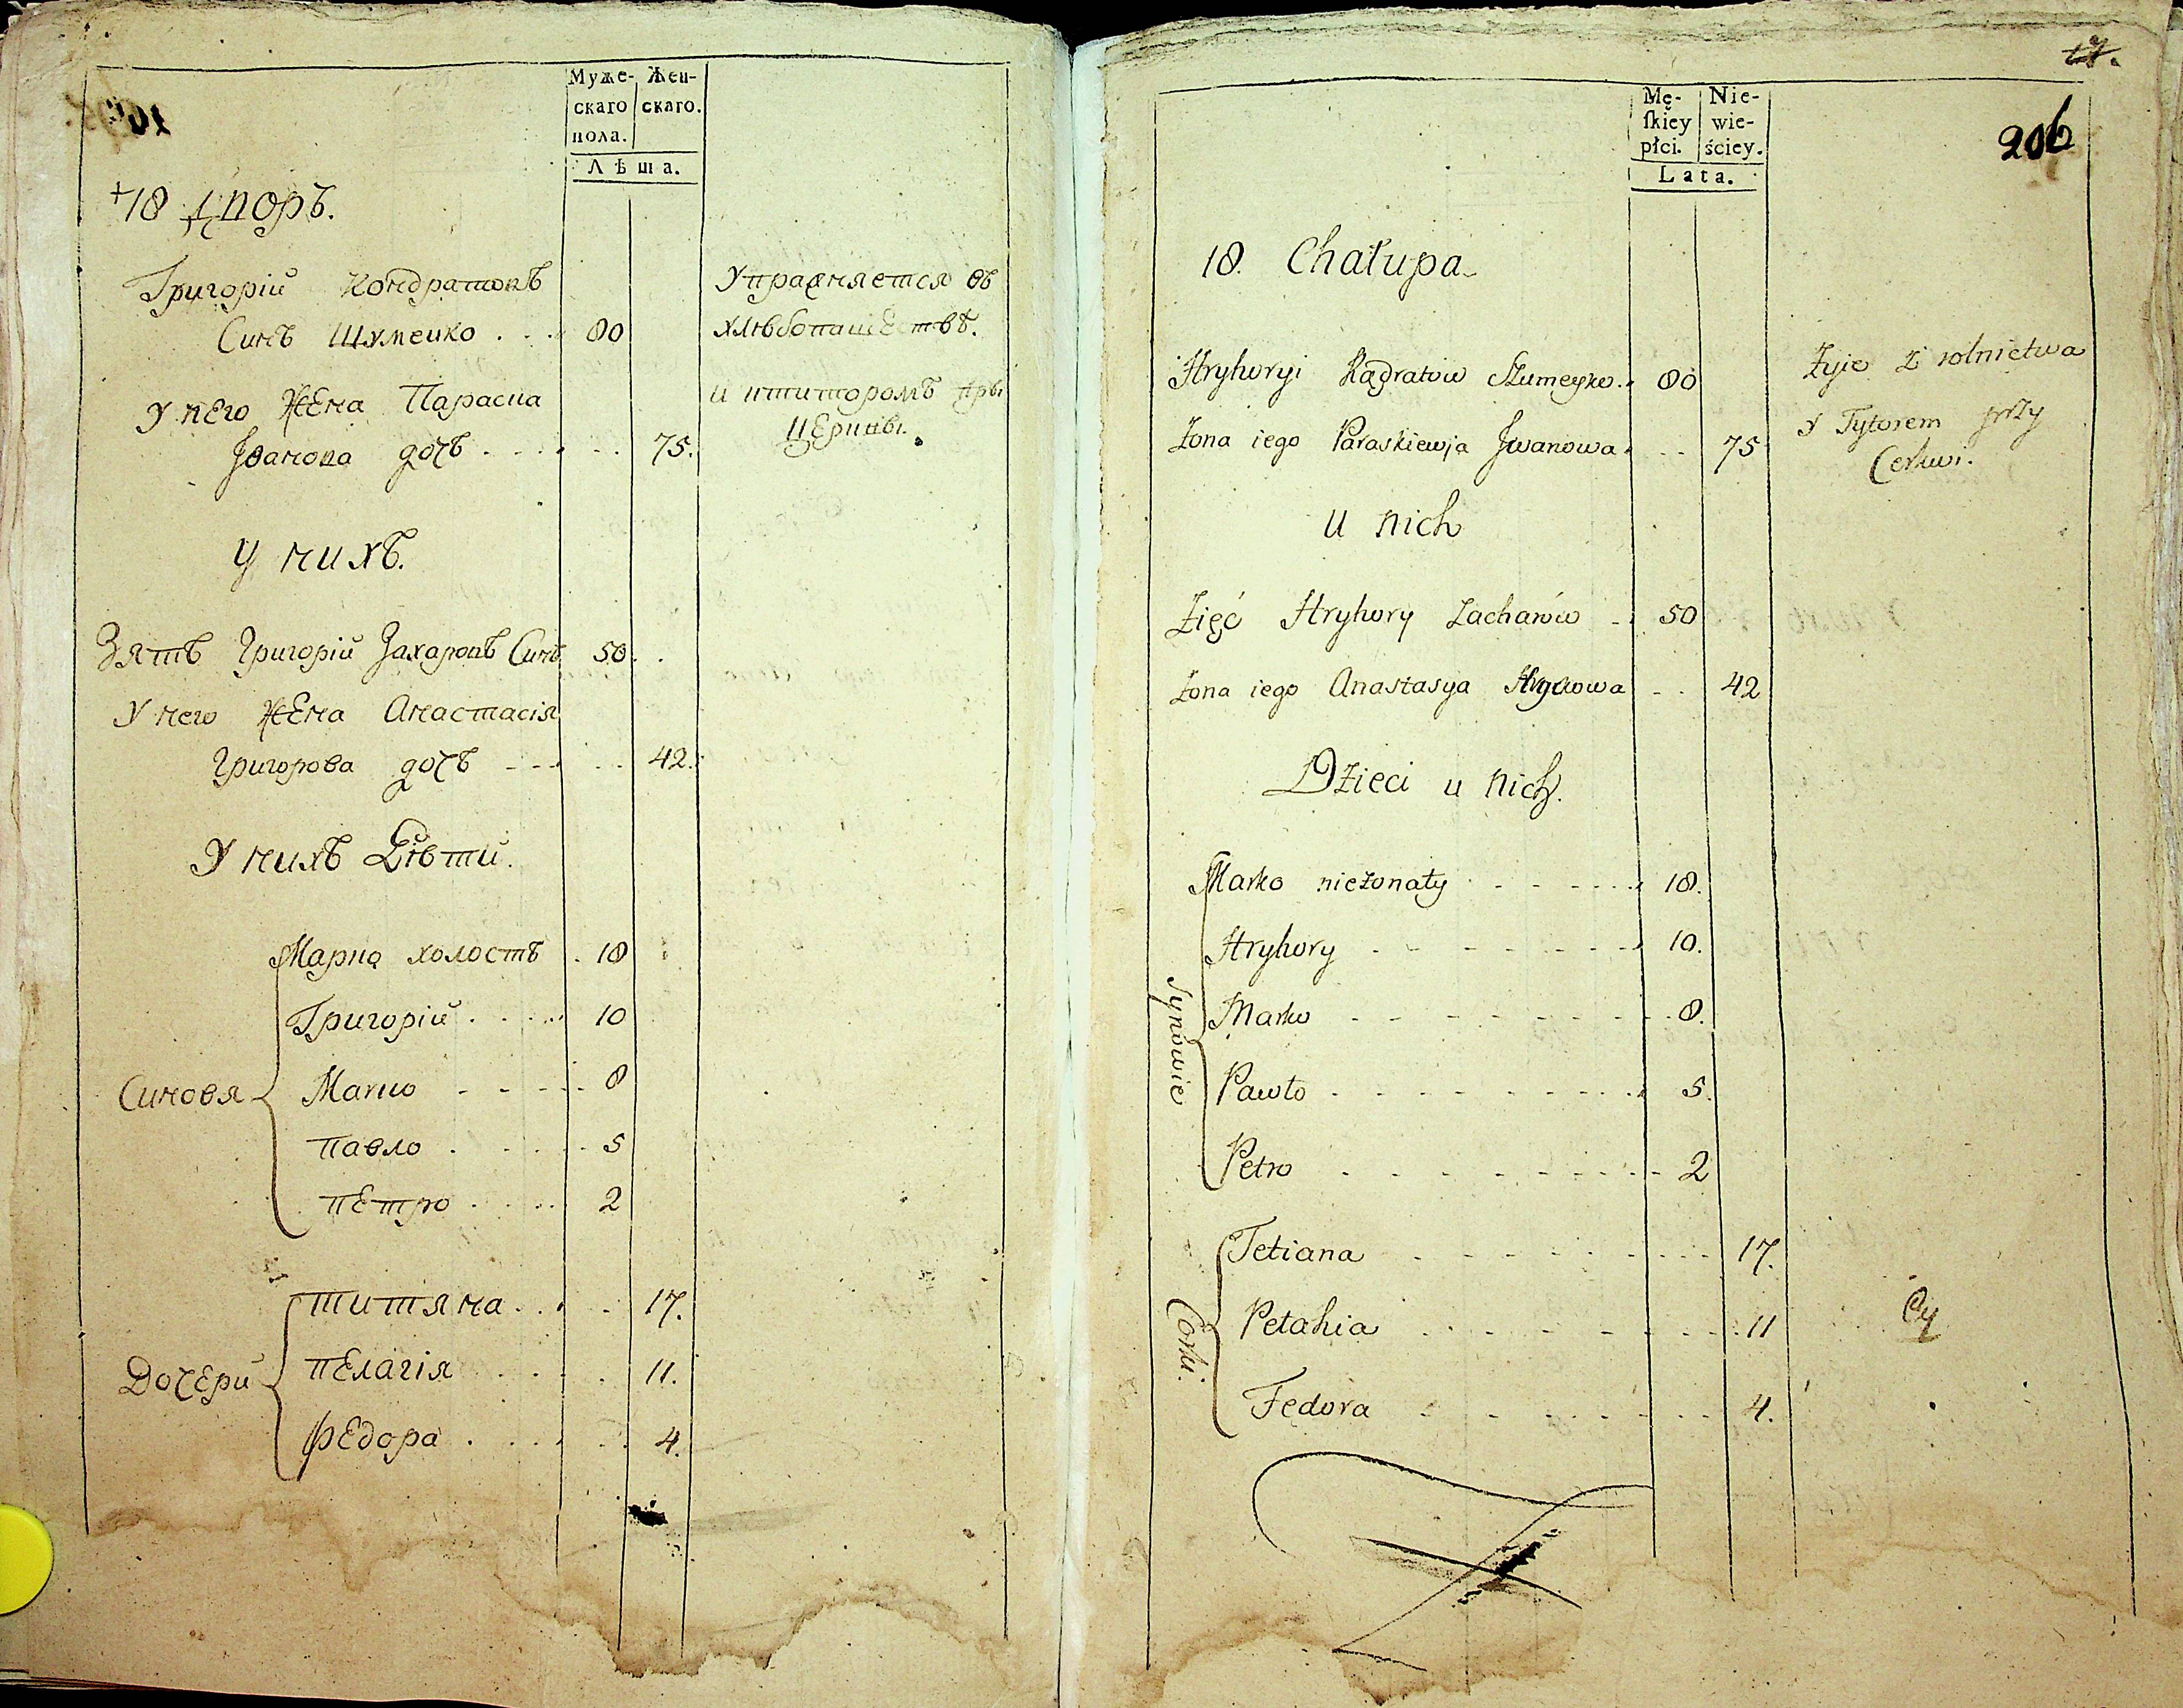 Муже- Жен-
скаго скаго.
пола.
Лѣта.
+18 Дворъ.
Григорій Кондратовъ
Синъ Шумейко . . . 80
Упражняется въ
хлѣбопашествѣ.
У него Жена Параска
Іванова дочъ . . . . 75.
и титоромъ при
Церкві.
У нихъ.
Зятъ Григорій Захаровъ Синъ 50.
У него Жена Анастасія
Григорова дочъ --- . . 42.
У нихъ Дѣти.
Синовя
Марко холостъ . 18
Григорій . . . . 10
Марко - - - - 8
Павло . . . . 5
Петро . . . . 2
Дочери
Титяна . . . 17.
Пелагія . . . 11.
Федора . . . . 4.
17.
206
Mę- Nie-
ſkiey wie-
płci. ściey.
Lata.
18. Chałupa
Hryhoryi Kądratow Szumeyko . 80
Żyie z rolnictwa
Żona iego Paraskiewja Jwanowa . . . 75
y Tytorem przy
Cerkwi.
u nich
Zięć Hryhory Zacharów - . 50
Żona iego Anastasya Hryhorowa - . . 42
Dzieci u nich.
Synowie
Marko nieżonaty - - - - - 18.
Hryhory - - - - - - - 10.
Marko - - - - - - - - - 8.
Pawło - - - - - - - - 5.
Petro - - - - - - - - - 2
Corki.
Tetiana - - - - - - - - 17.
Pelahia - - - - - - - - 11
Fedora - - - - - - - - 4.